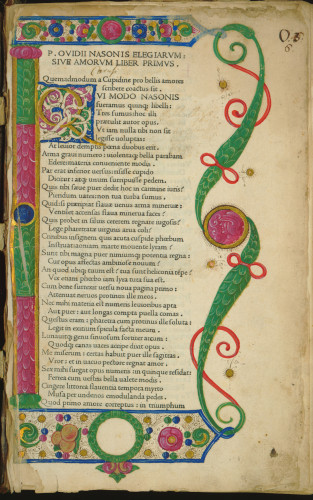 P. OVIDII NASONIS ELEGIARVM:
SIVE AMORVM LIBER PRIMVS.
Quemadmodum a Cupidine pro bellis amores
scribere coactus sit.
QVI MODO NASONIS
fueramus quinqȝ libelli:
Tres sumus: hoc illi
prætulit autor opus.
Vt iam nulla tibi non sit
legisse uoluptas:
At leuior demptis poena duobus erit.
Arma graui numero: uiolentaqȝ bella parabam
Edere: materia conueniente modis.
Par erat inferior uersus: risisse cupido
Dicitur: atqȝ unum surripuisse pedem.
Quis tibi sæue puer dedit hoc in carmine iuris?
Pieridum uates: non tua turba sumus.
Quid: si præripiat flauæ uenus arma mineruæ:
Ventilet accensas flaua minerua faces?
Quis probet in siluis cererem regnare iugosis?
Lege pharetratæ uirginis arua coli?
Crinibus insignem quis acuta cuspide phœbum
Instruat: aoniam marte mouente lyram?
Sunt tibi magna puer nimiumqȝ potentia regna:
Cur opus affectas ambitiose nouum?
An quod ubiqȝ tuum est? tua sunt heliconia tēpe?
Vix etiam phœbo iam lyra tuta sua est.
Cum bene surrexit uersu noua pagina primo:
Attenuat neruos proximus ille meos.
Nec mihi materia est numeris leuioribus apta
Aut puer: aut longas compta puella comas.
Questus eram: pharetra cum protinus ille soluta:
Legit in exitium spicula facta meum.
Lunauitqȝ genu sinuosum fortiter arcum:
Quodqȝ canas uates accipe dixit opus.
Me miserum: certas habuit puer ille sagittas.
Vror: et in uacuo pectore regnat amor.
Sex mihi surgat opus numeris: in quinque residat:
Ferrea cum uestris bella ualete modis.
Cingere littorea flauentia tempora myrto
Musa per undenos emodulanda pedes.
Quod primo amore correptus: in triumphum